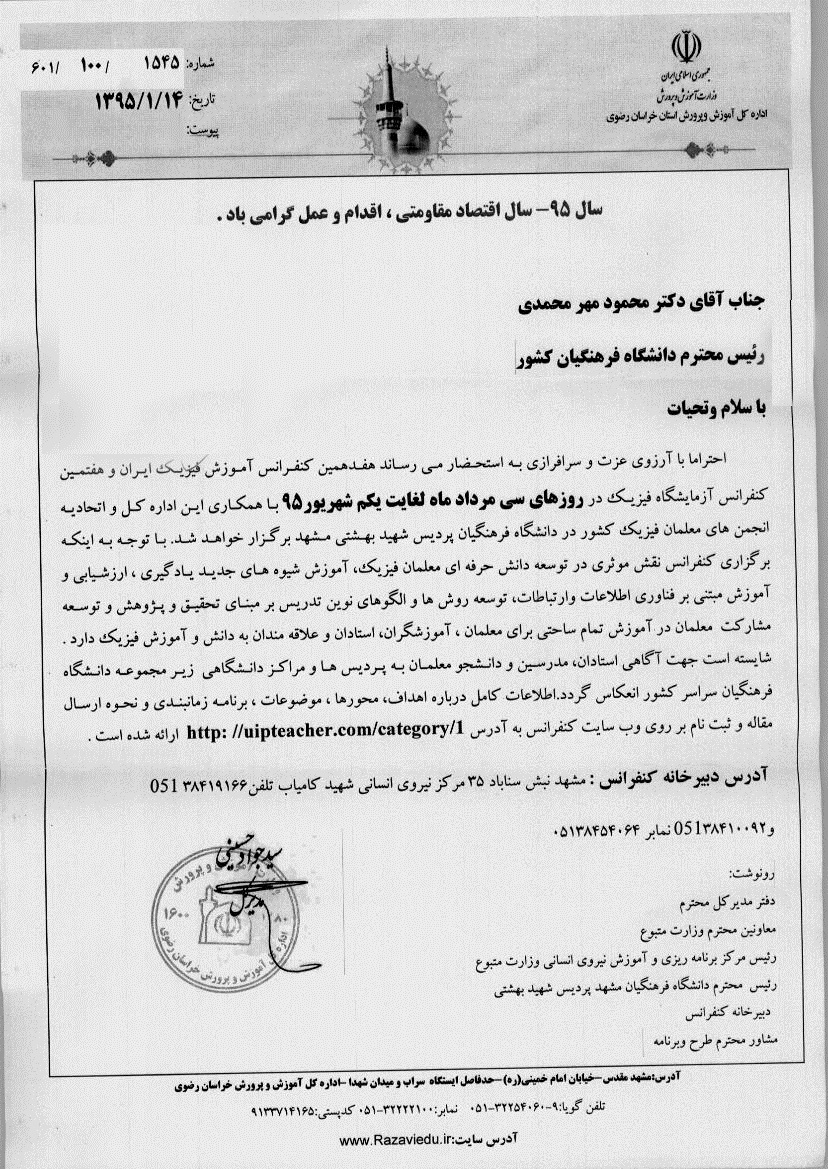 جمهوری اسلامی ایران
وزارت آموزش و پرورش
اداره کل آموزش وپرورش استان خراسان رضوی
شماره: ۱۵۴۵ /۱۰۰ /۶۰۱
تاریخ: ۱۳۹۵/۱/۱۴
پیوست:
سال ۹۵- سال اقتصاد مقاومتی ، اقدام و عمل گرامی باد .
جناب آقای دکتر محمود مهر محمدی
رئیس محترم دانشگاه فرهنگیان کشور
با سلام وتحیات
احتراما با آرزوی عزت و سرافرازی به استحضار می رساند هفدهمین کنفرانس آموزش فیزیک ایران و هفتمین
کنفرانس آزمایشگاه فیزیک در روزهای سی مرداد ماه لغایت یکم شهریور۹۵ با همکاری این اداره کل و اتحادیه
انجمن های معلمان فیزیک کشور در دانشگاه فرهنگیان پردیس شهید بهشتی مشهد برگزار خواهد شد. با توجه به اینکه
برگزاری کنفرانس نقش موثری در توسعه دانش حرفه ای معلمان فیزیک، آموزش شیوه های جدید یادگیری ، ارزشیابی و
آموزش مبتنی بر فناوری اطلاعات وارتباطات، توسعه روش ها و الگوهای نوین تدریس بر مبنای تحقیق و پژوهش و توسعه
مشارکت معلمان در آموزش تمام ساحتی برای معلمان ، آموزشگران، استادان و علاقه مندان به دانش و آموزش فیزیک دارد .
شایسته است جهت آگاهی استادان، مدرسین و دانشجو معلمان به پردیس ها و مراکز دانشگاهی زیر مجموعه دانشگاه
فرهنگیان سراسر کشور انعکاس گردد.اطلاعات کامل درباره اهداف، محورها ، موضوعات ، برنامه زمانبندی و نحوه ارسال
مقاله و ثبت نام بر روی وب سایت کنفرانس به آدرس http: //uipteacher.com/category/1 ارائه شده است .
آدرس دبیرخانه کنفرانس : مشهد نبش سناباد ۳۵ مرکز نیروی انسانی شهید کامیاب تلفن۳۸۴۱۹۱۶۶ 051
و۳۸۴۱۰۰۹۲051 نمابر ۰۵۱۳۸۴۵۴۰۶۴
سید جواد حسینی
مدیرکل
آموزش و پرورش
۱۶۰۰
۸۰
اداره کل آموزش و پرورش خراسان رضوی
رونوشت:
دفتر مدیرکل محترم
معاونین محترم وزارت متبوع
رئیس مرکز برنامه ریزی و آموزش نیروی انسانی وزارت متبوع
رئیس محترم دانشگاه فرهنگیان مشهد پردیس شهید بهشتی
دبیرخانه کنفرانس
مشاور محترم طرح وبرنامه
آدرس:مشهد مقدس-خیابان امام خمینی(ره) -حدفاصل ایستگاه سراب و میدان شهدا -اداره کل آموزش و پرورش خراسان رضوی
تلفن گویا:۹-۳۲۲۵۴۰۶۰-۰۵۱ نمابر:۳۲۲۲۲۱۰۰-۰۵۱ کدپستی:۹۱۳۳۷۱۴۱۶۵
آدرس سایت:www.Razaviedu.ir